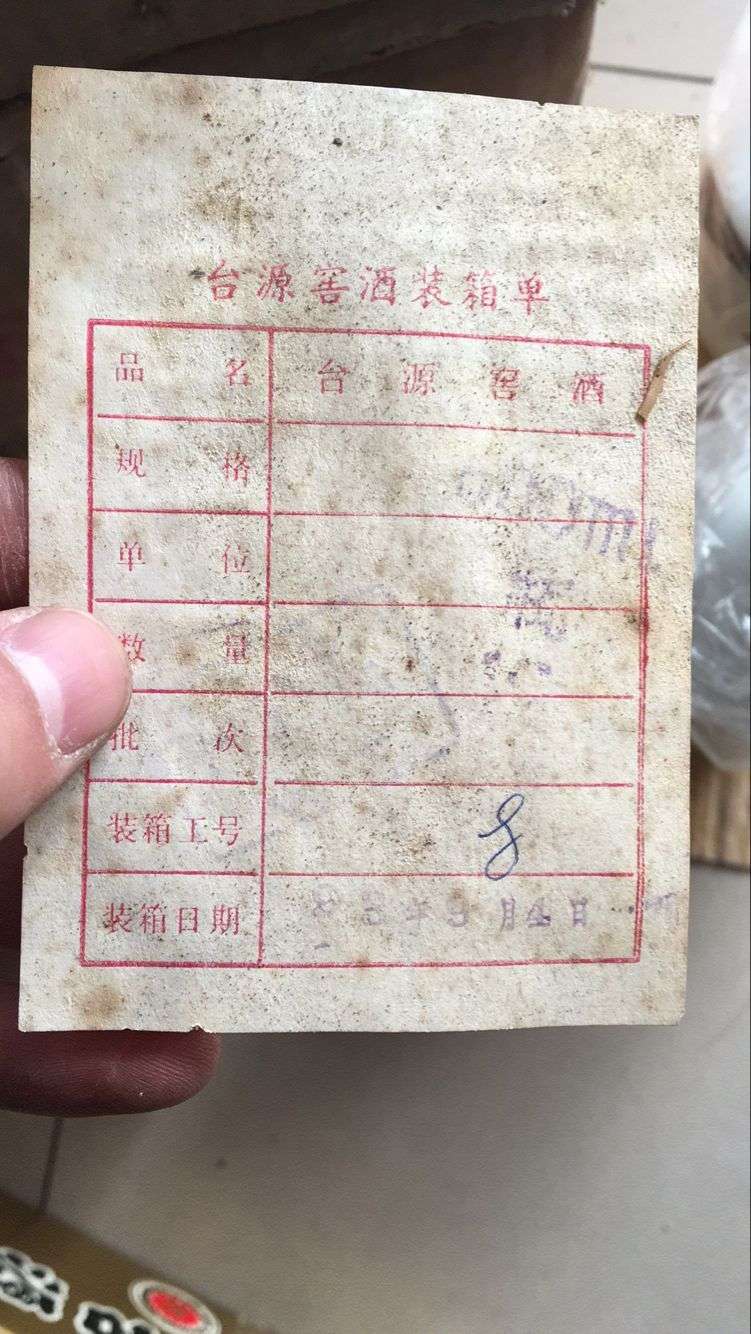 台源窖酒装箱单
品名 台源窖酒
规格
单位
数量
批次
装箱工号 8
装箱日期 83年9月4日